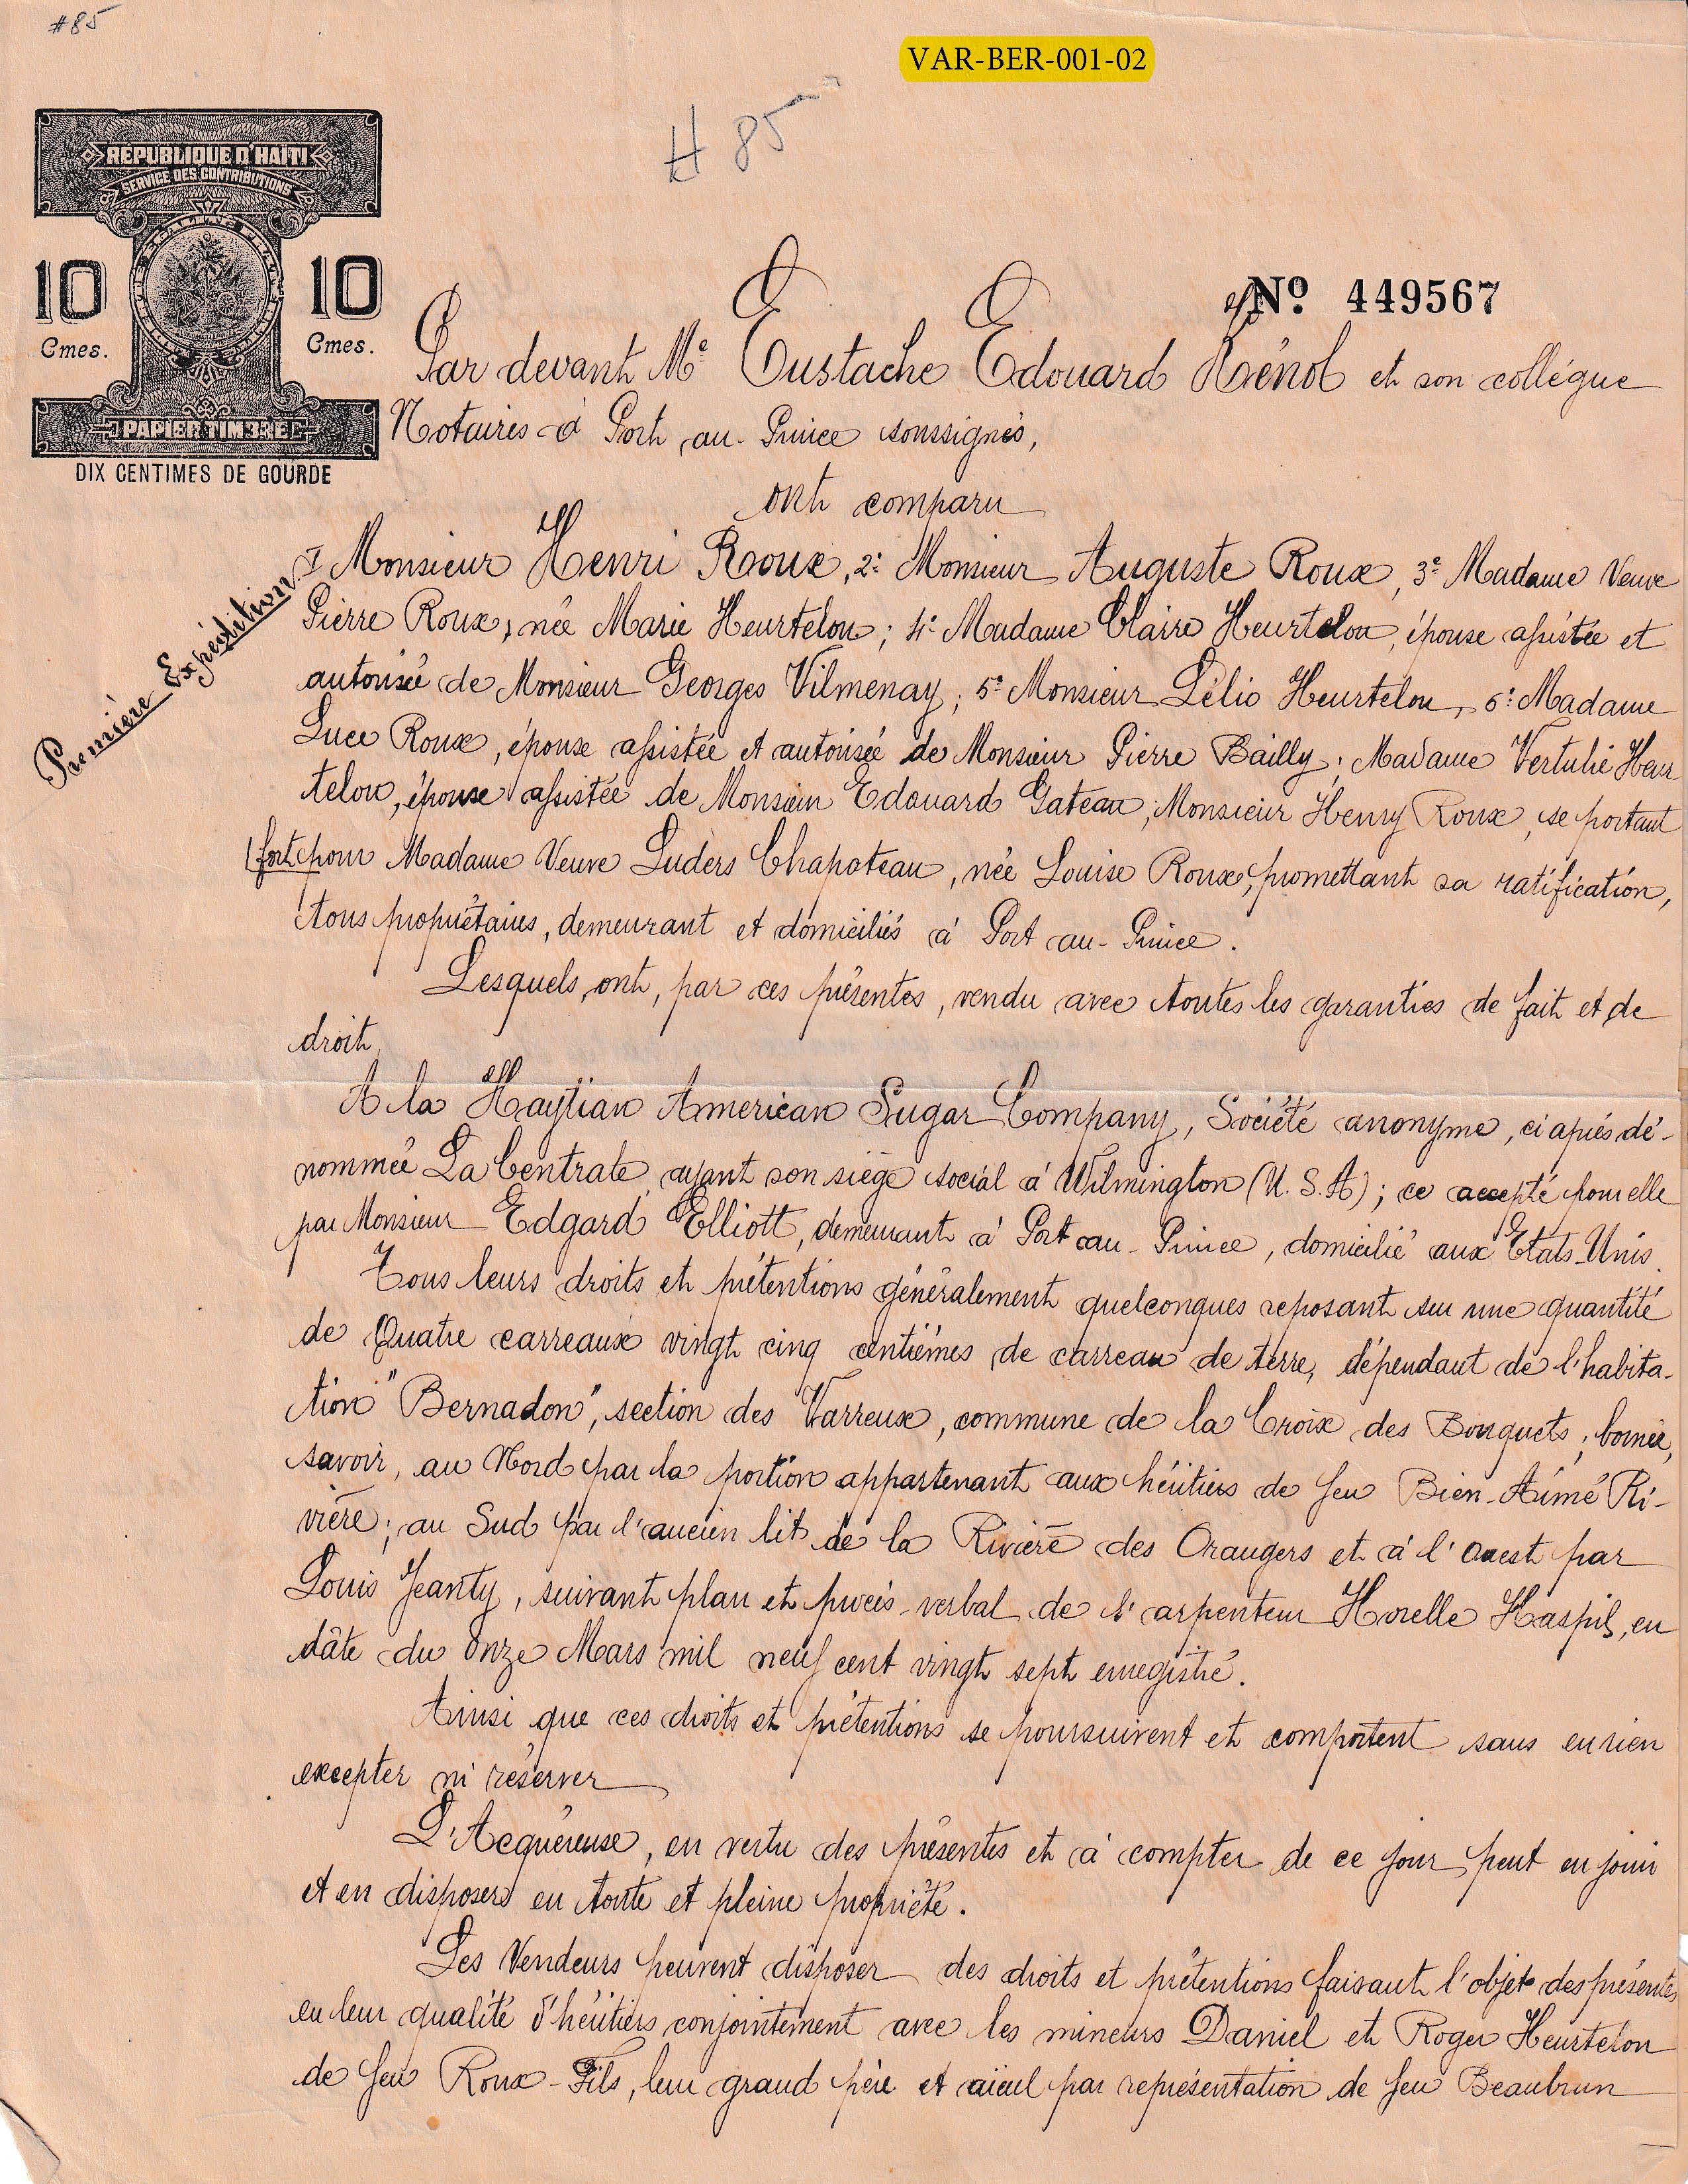 #85
VAR-BER-001-02
# 85
RÉPUBLIQUE D'HAITI
SERVICE DES CONTRIBUTIONS
10 10
Cmes. Cmes.
PAPIER TIMBRE
DIX CENTIMES DE GOURDE
Nº 449567
Par devant Me Eustache Edouard Kénol et son collégue
Notaires à Port-au-Prince soussignés,
ont comparu
Première Expédition
1 Monsieur Henri Roux, 2º Monsieur Auguste Roux, 3º Madame Veuve
Pierre Roux, née Marie Heurtelou; 4º Madame Claire Heurtelou, épouse assistée et
autorisée de Monsieur Georges Vilmenay; 5º Monsieur Lélio Heurtelou, 6º Madame
Luce Roux, épouse assistée et autorisée de Monsieur Pierre Bailly; Madame Vertulie Heur
telou, épouse assistée de Monsieur Edouard Gateau; Monsieur Henry Roux, se portant
fort pour Madame Veuve Luders Chapoteau, née Louise Roux, promettant sa ratification,
tous propriétaires, demeurant et domiciliés à Port-au-Prince.
Lesquels ont, par ces présentes, vendu avec toutes les garanties de fait et de
droit,
A la Haytian American Sugar Company, Société anonyme, ci après dé-
nommée La Centrale, ayant son siège social à Wilmington (U.S.A); ce accepté pour elle
par Monsieur Edgard Elliott, demeurant à Port-au-Prince, domicilié aux Etats-Unis.
Tous leurs droits et prétentions généralement quelconques reposant sur une quantité
de Quatre carreaux vingt cinq centièmes de carreau de terre, dépendant de l'habita-
tion "Bernadon", section des Varreux, commune de la Croix des Bouquets; bornée,
savoir, au Nord par la portion appartenant aux héritiers de feu Bien-Aimé Ri-
vière; au Sud par l'ancien lit de la Rivière des Orangers et à l'ouest par
Louis Jeanty, suivant plan et procès-verbal de l'arpenteur Horelle Haspil, en
dâte du onze Mars mil neuf cent vingt sept enregistré.
Ainsi que ces droits et prétentions se poursuivent et comportent sans en rien
excepter ni réserver
L'Acquéreuse, en vertu des présentes et à compter de ce jour, peut en jouir
et en disposer en toute et pleine propriété.
Les Vendeurs peuvent disposer des droits et prétentions faisant l'objet des présentes
en leur qualité d'héritiers conjointement avec les mineurs Daniel et Roger Heurtelou
de feu Roux-Fils, leur grand père et aïeul par représentation de feu Beaubrun